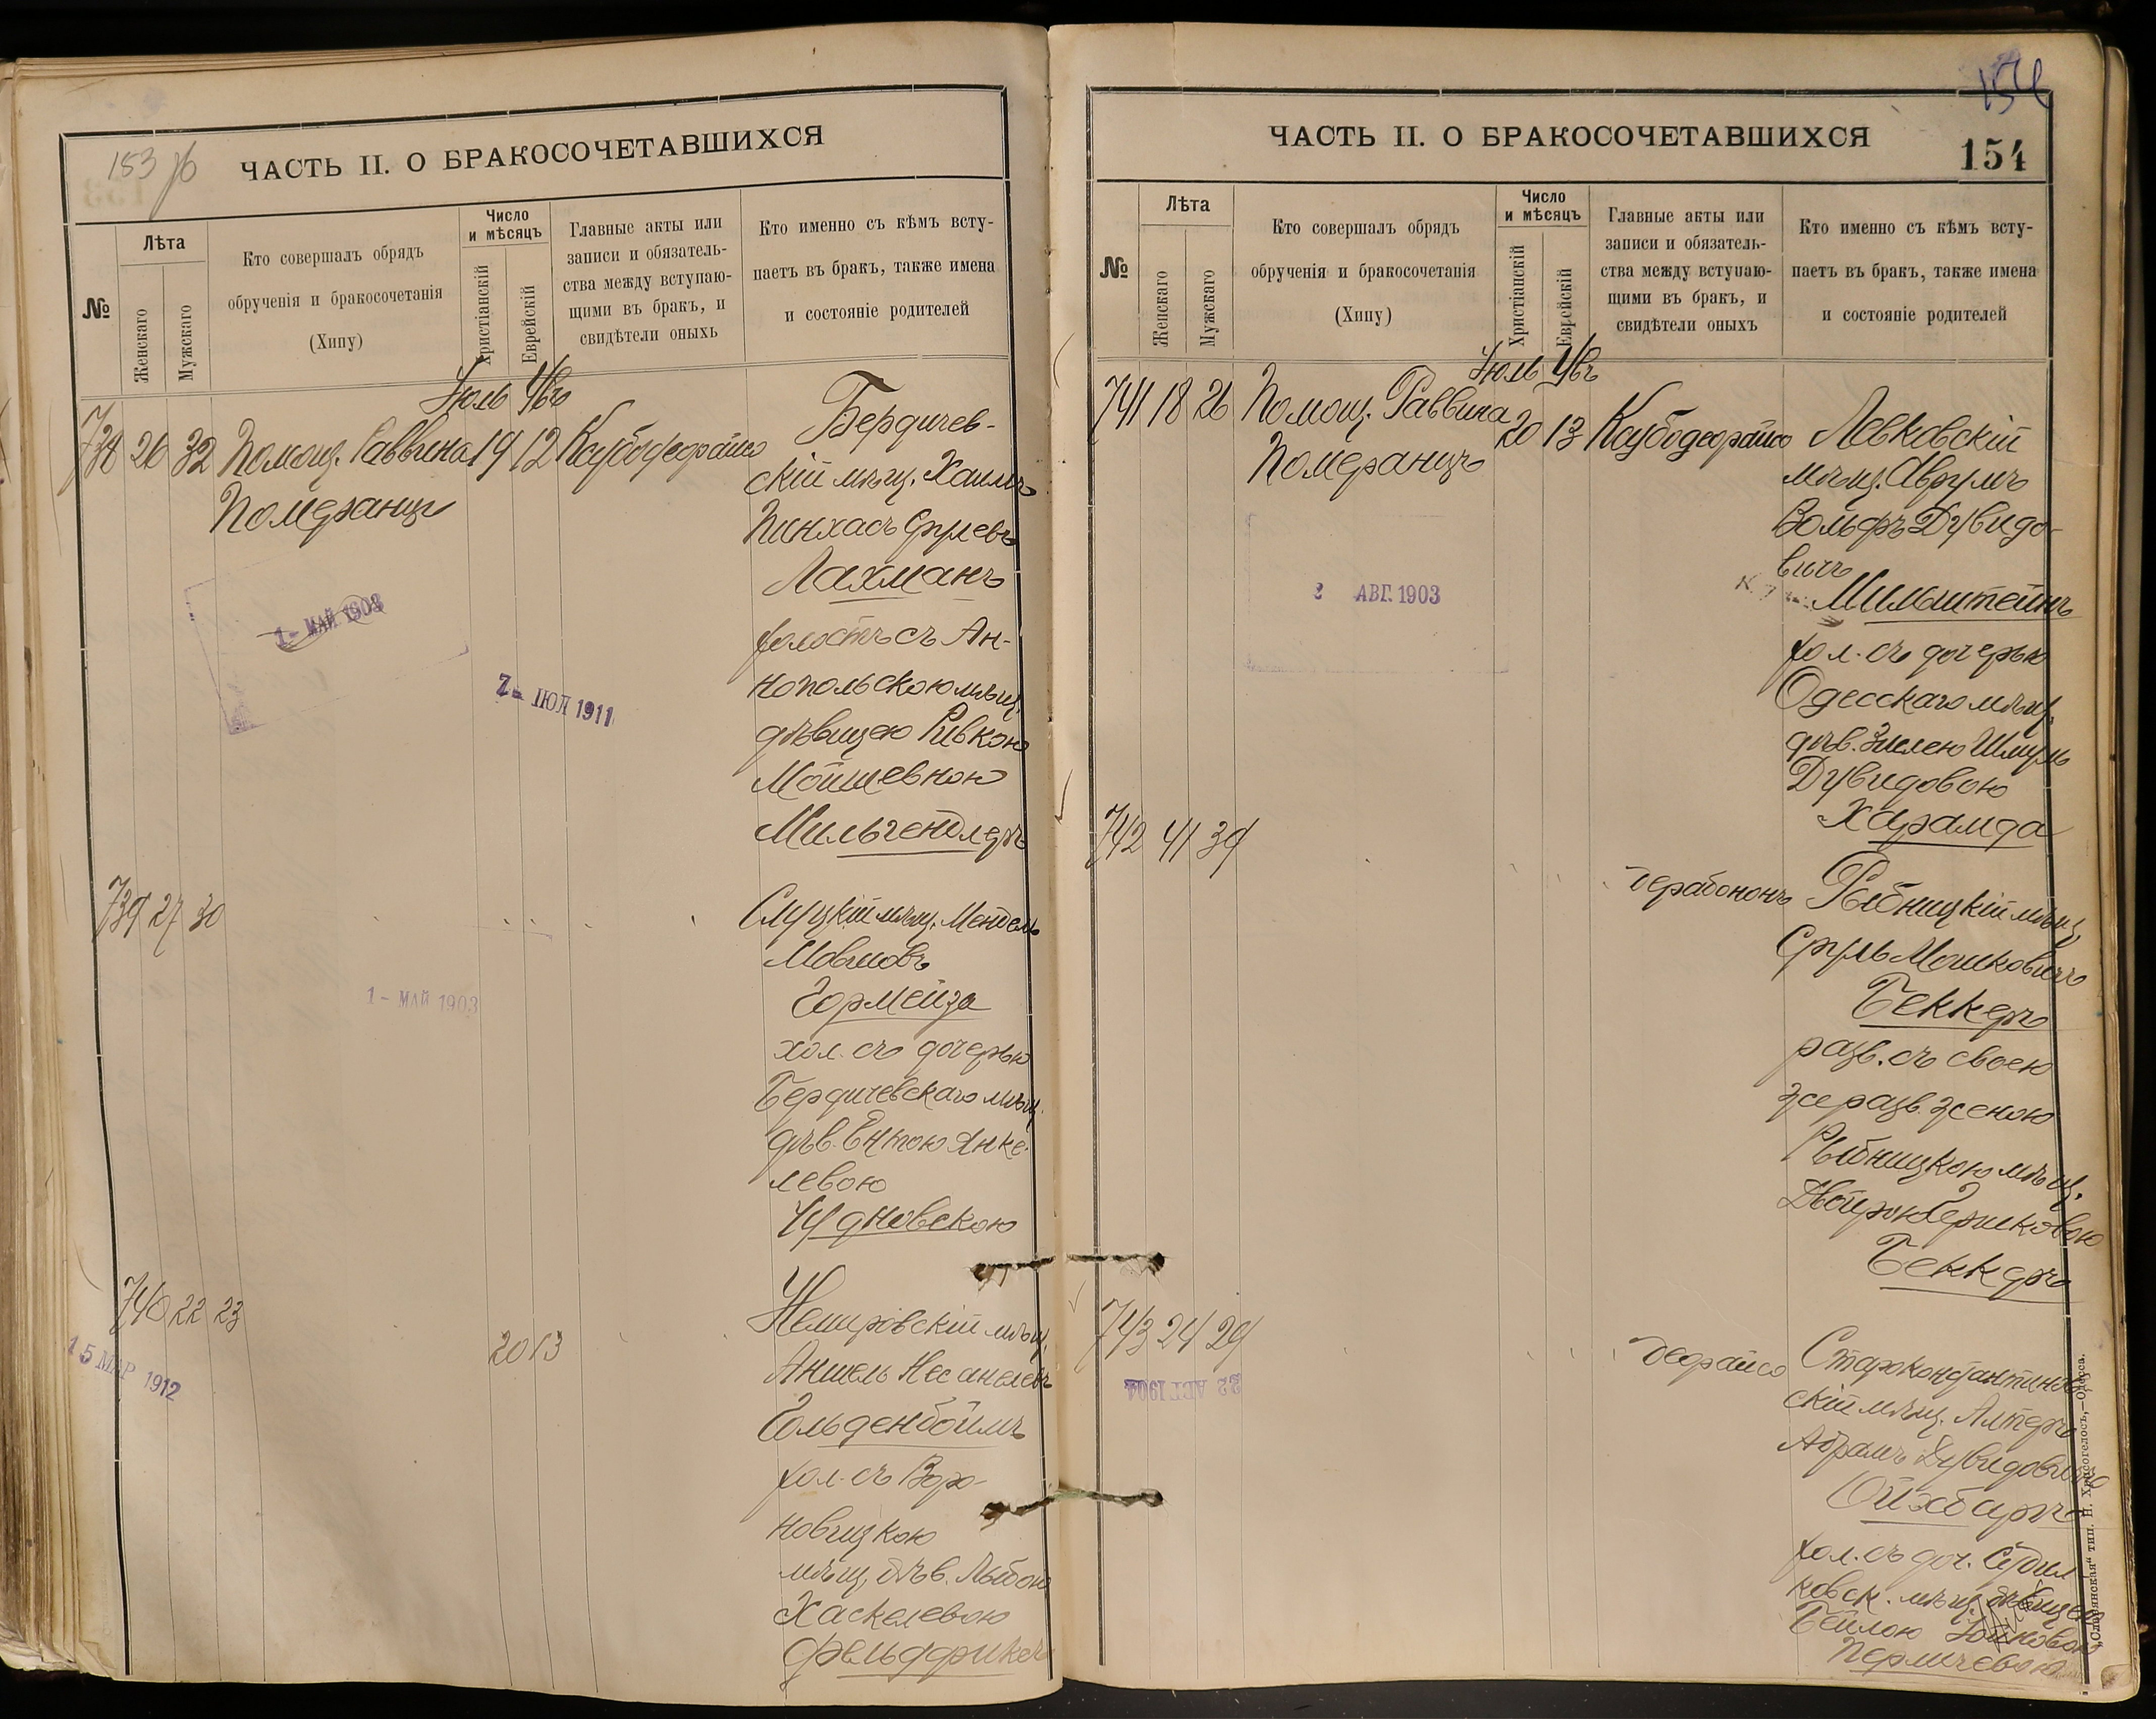 153 об
ЧАСТЬ II. О БРАКОСОЧЕТАВШИХСЯ
№
Лѣта
Женскаго
Мужскаго
Кто совершалъ обрядъ
обрученія и бракосочетанія
(Хипу)
Число
и мѣсяцъ
Христіанскій
Еврейскій
Главные акты или
записи и обязатель-
ства между вступаю-
щими въ бракъ, и
свидѣтели оныхъ
Кто именно съ кѣмъ всту-
паетъ въ бракъ, также имена
и состояніе родителей
Іюль
738 26 32 Помощ. Раввина 19 12
Померанцъ
Бердичев-
скій мѣщ. Хаимъ
Пинхасъ Срулевъ
Лахманъ
холостъ съ Ан-
нопольскою мѣщ.
дѣвицею Ривкою
Мошиевною
Мильгендлеръ
1 - МАЙ 1903
7 - ІЮЛ 1911
739 27 30
Слуцкій мѣщ. Мендель
Мовшовъ
Гормейза
хол. съ дочерью
Бердичевскаго мѣщ.
дѣв. Ентою Янке-
левою
Чудновскою
1 - МАЙ 1903
740 22 23
20 13
Немировскій мѣщ.
Аншель Несанелевъ
Гольденбоймъ
хол. съ Вор-
новицкою
мѣщ. дѣв. Лыбою
Хаскелевою
Фельдфриксъ
15 МАР 1912
154
ЧАСТЬ II. О БРАКОСОЧЕТАВШИХСЯ
154
№
Лѣта
Женскаго
Мужскаго
Кто совершалъ обрядъ
обрученія и бракосочетанія
(Хипу)
Число
и мѣсяцъ
Христіанскій
Еврейскій
Главные акты или
записи и обязатель-
ства между вступаю-
щими въ бракъ, и
свидѣтели оныхъ
Кто именно съ кѣмъ всту-
паетъ въ бракъ, также имена
и состояніе родителей
Іюль
741 18 26 Помощ. Раввина 20 13
Померанцъ
Левковскій
мѣщ. Аврумъ
Вольфъ Дувидо-
вичъ
Мильштейнъ
хол. съ дочерью
Одесскаго мѣщ.
дѣв. Зислею Шмуль
Дувидовою
Харамда
АВГ. 1903
742 41 39
дерабононъ
Рыбницкій мѣщ.
Сруль Мошковичъ
Беккеръ
разв. съ своею
же разв. женою
Рыбницкою мѣщ.
Двойрою Гершковою
Беккеръ
743 24 29
деорайсо
Староконстантинов-
скій мѣщ. Алтеръ
Абрамъ Дувидовичъ
Ойхбаргъ
хол. съ доч. Судил-
ковск. мѣщ. дѣвицею
Бейлою
Перличевою
22 АВГ 1904
„Славянская“ тип. Н. Хрисогелосъ,—Одесса.